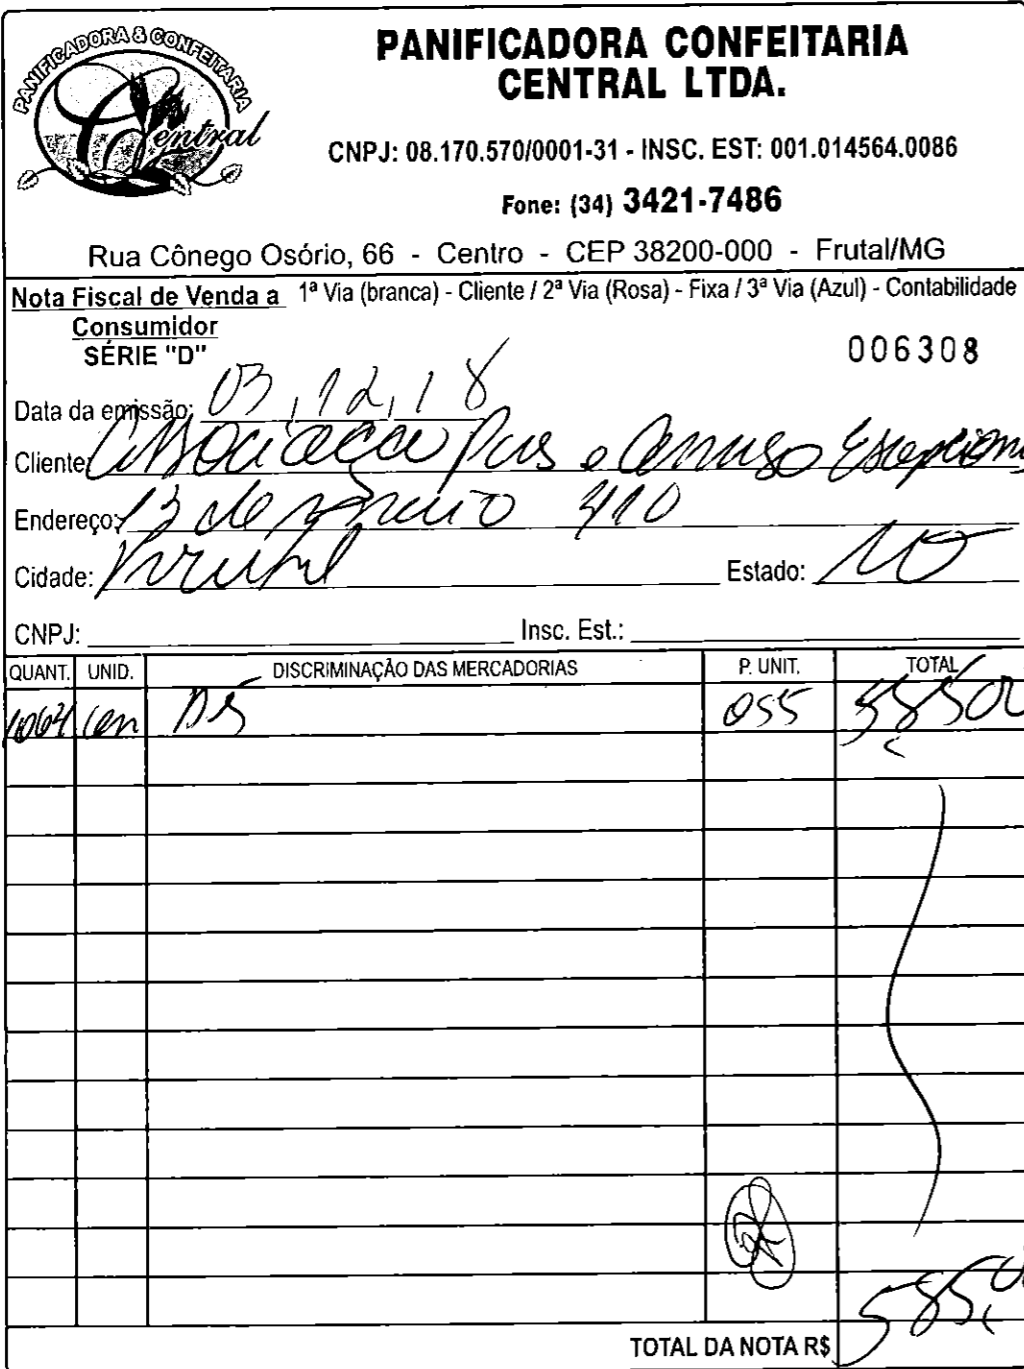 PANIFICADORA & CONFEITARIA
Central
PANIFICADORA CONFEITARIA
CENTRAL LTDA.
CNPJ: 08.170.570/0001-31 - INSC. EST: 001.014564.0086
Fone: (34) 3421-7486
Rua Cônego Osório, 66 - Centro - CEP 38200-000 - Frutal/MG
Nota Fiscal de Venda a 1ª Via (branca) - Cliente / 2ª Via (Rosa) - Fixa / 3ª Via (Azul) - Contabilidade
Consumidor
SÉRIE "D"
006308
Data da emissão: 03, 12, 18
Cliente: Associação Pais e Amigo
Endereço: 13 de 410
Cidade: Frutal Estado:
CNPJ: Insc. Est.:
QUANT. UNID. DISCRIMINAÇÃO DAS MERCADORIAS P. UNIT. TOTAL
1064 055 585,00
585,00
TOTAL DA NOTA R$